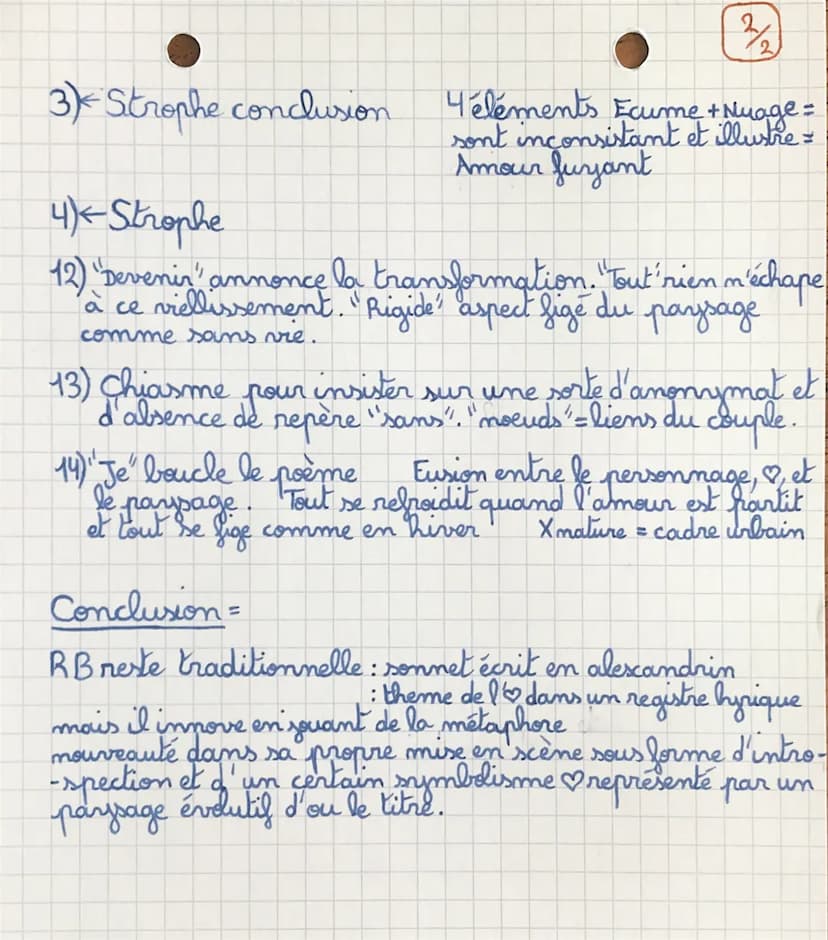 2/2
3)← Strophe conclusion
4 éléments Ecume + Nuage =
sont inconsistant et illustre =
Amour fuyant
4)← Strophe
12) "Devenir" annonce la transformation. "Tout" rien n'échape
à ce viellissement. "Rigide" aspect figé du paysage
comme sans vie.
13) Chiasme pour insister sur une sorte d'anonnymat et
d'absence de repère "sans". "noeuds" = liens du couple.
14) "Je" boucle le poème Fusion entre le personnage, ♡, et
le paysage. Tout se refroidit quand l'amour est partit
et tout se fige comme en hiver X nature = cadre urbain
Conclusion =
RB reste traditionnelle : sonnet écrit en alexandrin
: theme de l'♡ dans un registre lyrique
mais il innove en jouant de la métaphore
nouveauté dans sa propre mise en scène sous forme d'intro-
-spection et d'un certain symbolisme ♡ représenté par un
paysage évolutif d'ou le titre.